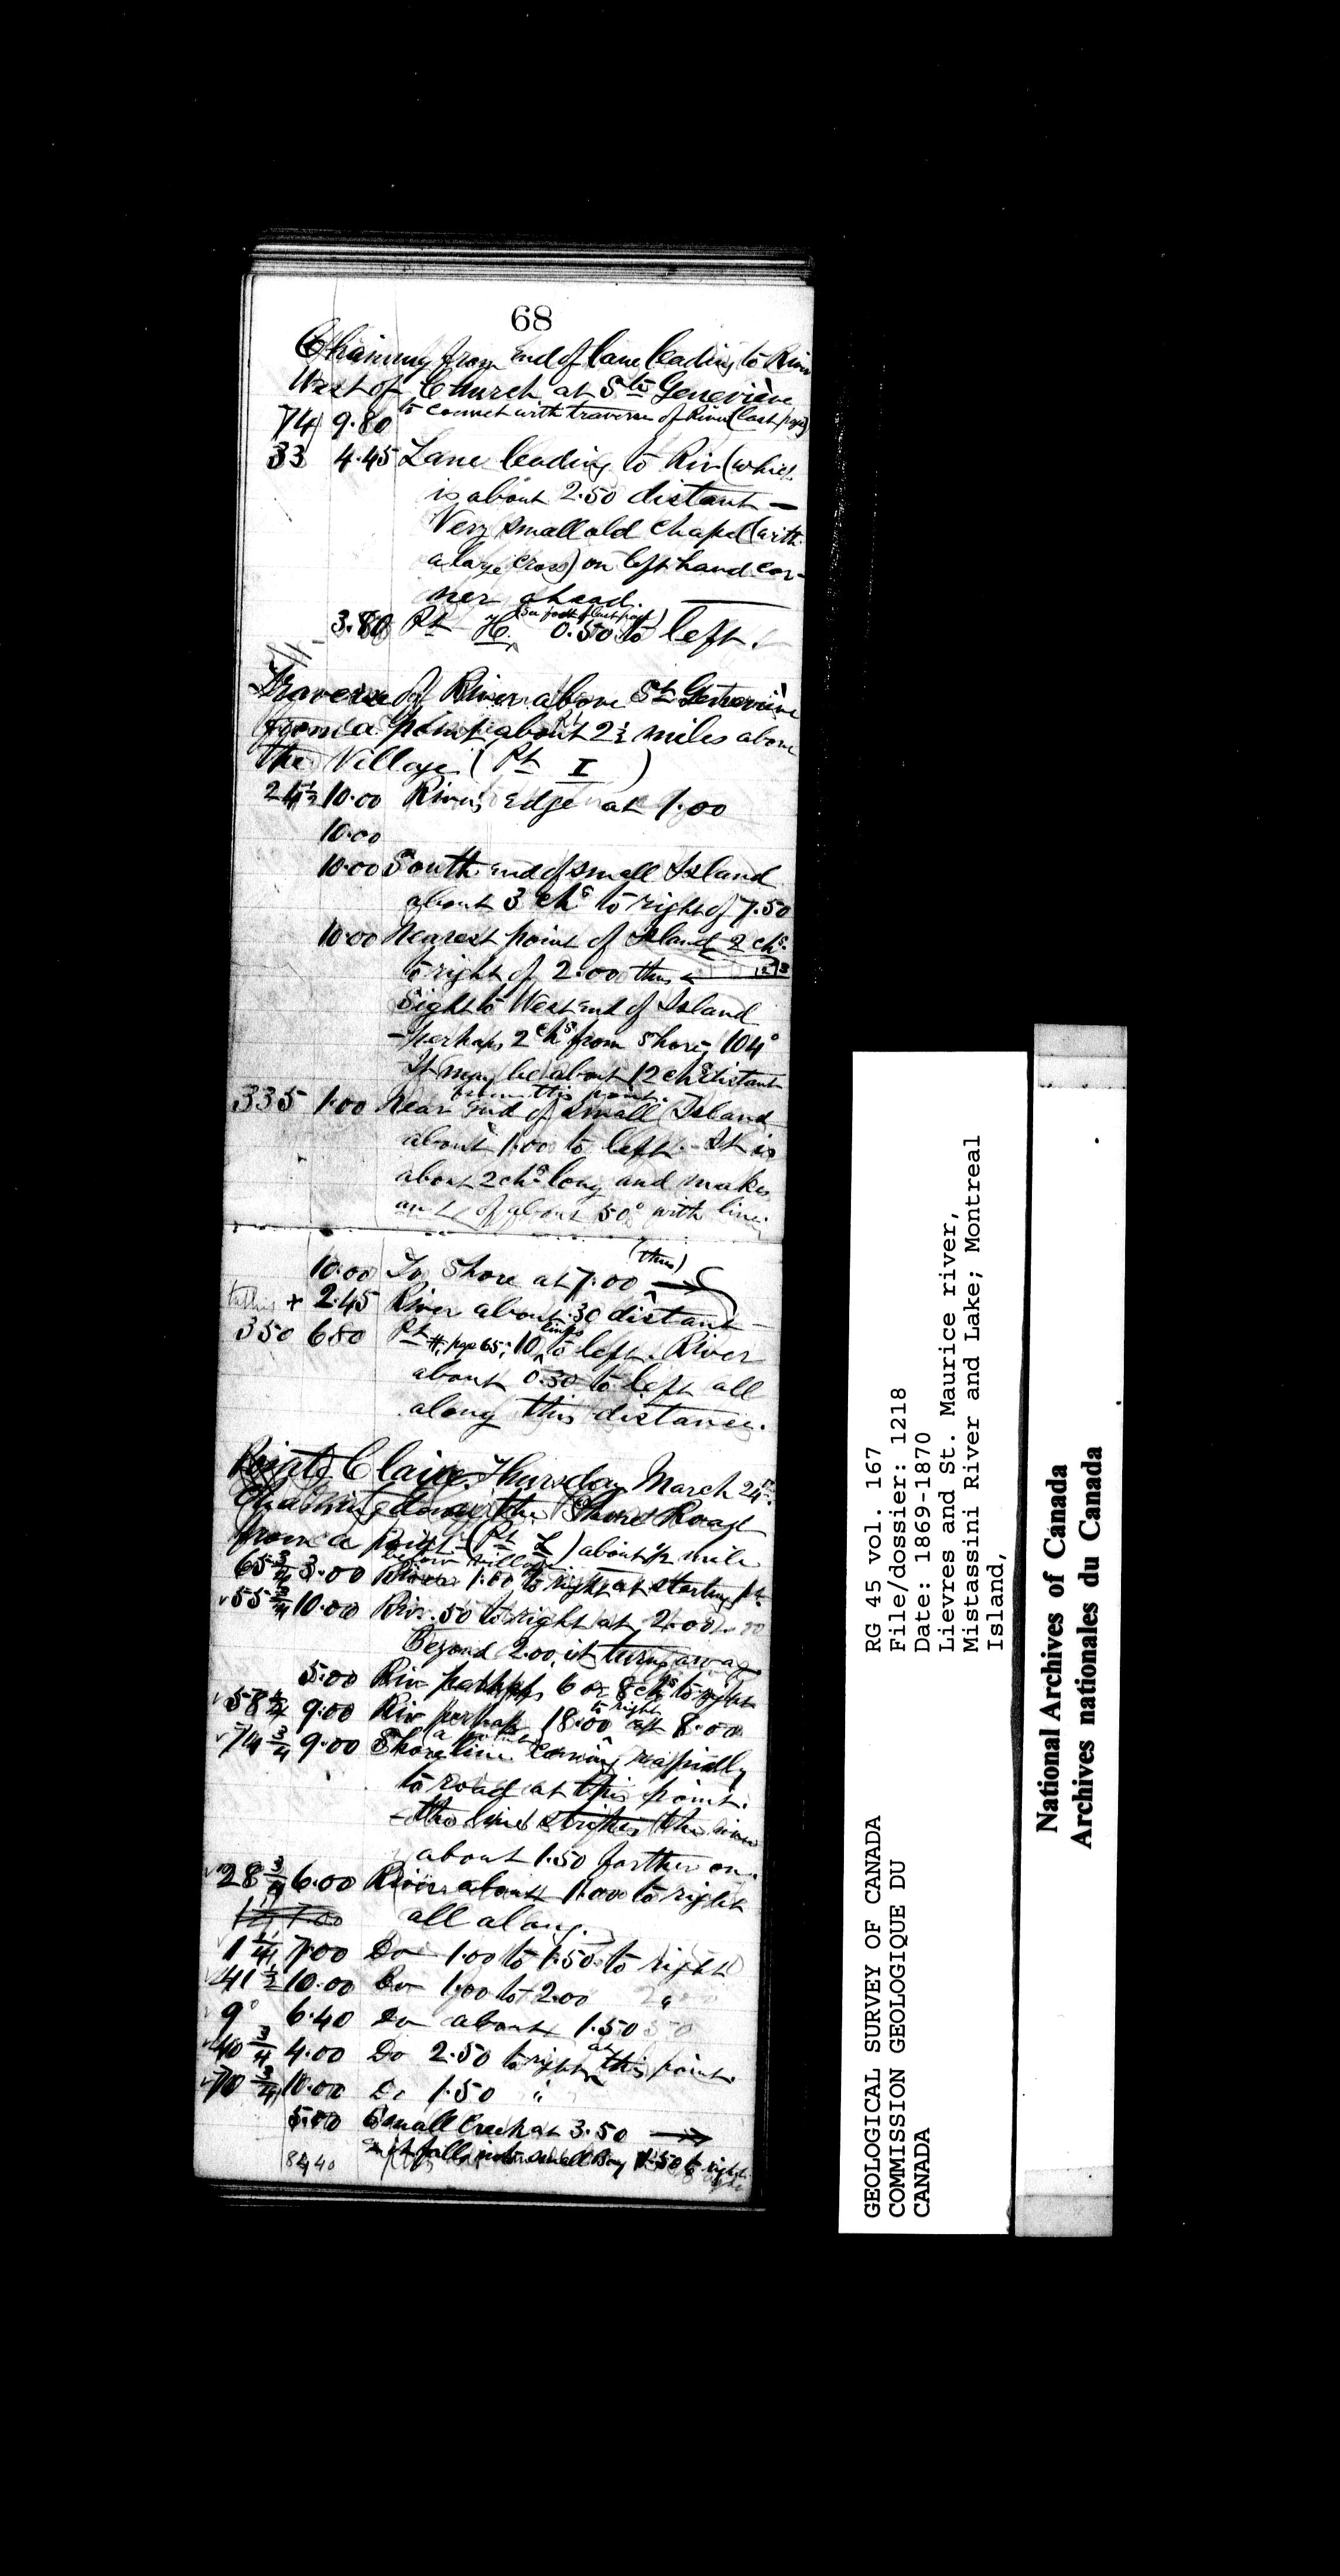 68
Chaining from end of lane leading to River
West of Church at Ste Geneviève
to connect with traverse of River (last page)
74 9.80
33 4.45 Lane leading to Riv (which
is about 2.50 distant —
Very small old chapel (with
a large cross) on left hand cor-
ner ahead.
3.80 Pt H. (See foot of last page) 0.50 to left.
Traverse of River above Ste Geneviève
from a point about 2½ miles above
the Village (Pt I)
24½ 10.00 River's edge at 1.00
10.00
10.00 South end of small Island
about 3 chs to right of 7.50
10.00 Nearest point of Island 2 chs.
to right of 2.00 thus
Sight to West end of Island
– perhaps 2 chs from shore, 104°
It may be about 12 chs distant
from this point.
335 1.00 Near end of small Island
about 1.00 to left. It is
about 2 chs long and makes
an ∠ of about 50° with line.
10.00 To Shore at 7.00 (thus)
+ 2.45 River about .30 distant –
350 6.80 Pt H, page 65; 10 links to left. River
about 0.30 to left all
along this distance.
Pointe Claire, Thursday March 24th.
Chaining along the Shore Road
from a point (Pt L) about ½ mile
below village.
65¾ 3.00 River 1.00 to right at starting pt.
55¾ 10.00 Riv. .50 to right at 2.00
Beyond 2.00, it turns away
5.00 Riv perhaps 6 or 8 chs to right
58¼ 9.00 Riv perhaps 18.00 to right at 8.00
74¾ 9.00 Shore line coming rapidly
to road at this point.
– the line strikes the river
about 1.50 farther on.
28¾ 6.00 River about 1.00 to right
all along.
1¼ 7.00 Do 1.00 to 1.50 to right
41½ 10.00 Do 1.00 to 2.00 "
9° 6.40 Do about 1.50
40¾ 4.00 Do 2.50 to right at this point.
70¾ 10.00 Do 1.50 "
5.00 Small Creek at 3.50
it falls into small Bay 1.50 to right
84,40
GEOLOGICAL SURVEY OF CANADA
COMMISSION GEOLOGIQUE DU
CANADA
RG 45 vol. 167
File/dossier: 1218
Date: 1869-1870
Lievres and St. Maurice river,
Mistassini River and Lake; Montreal
Island,
National Archives of Canada
Archives nationales du Canada